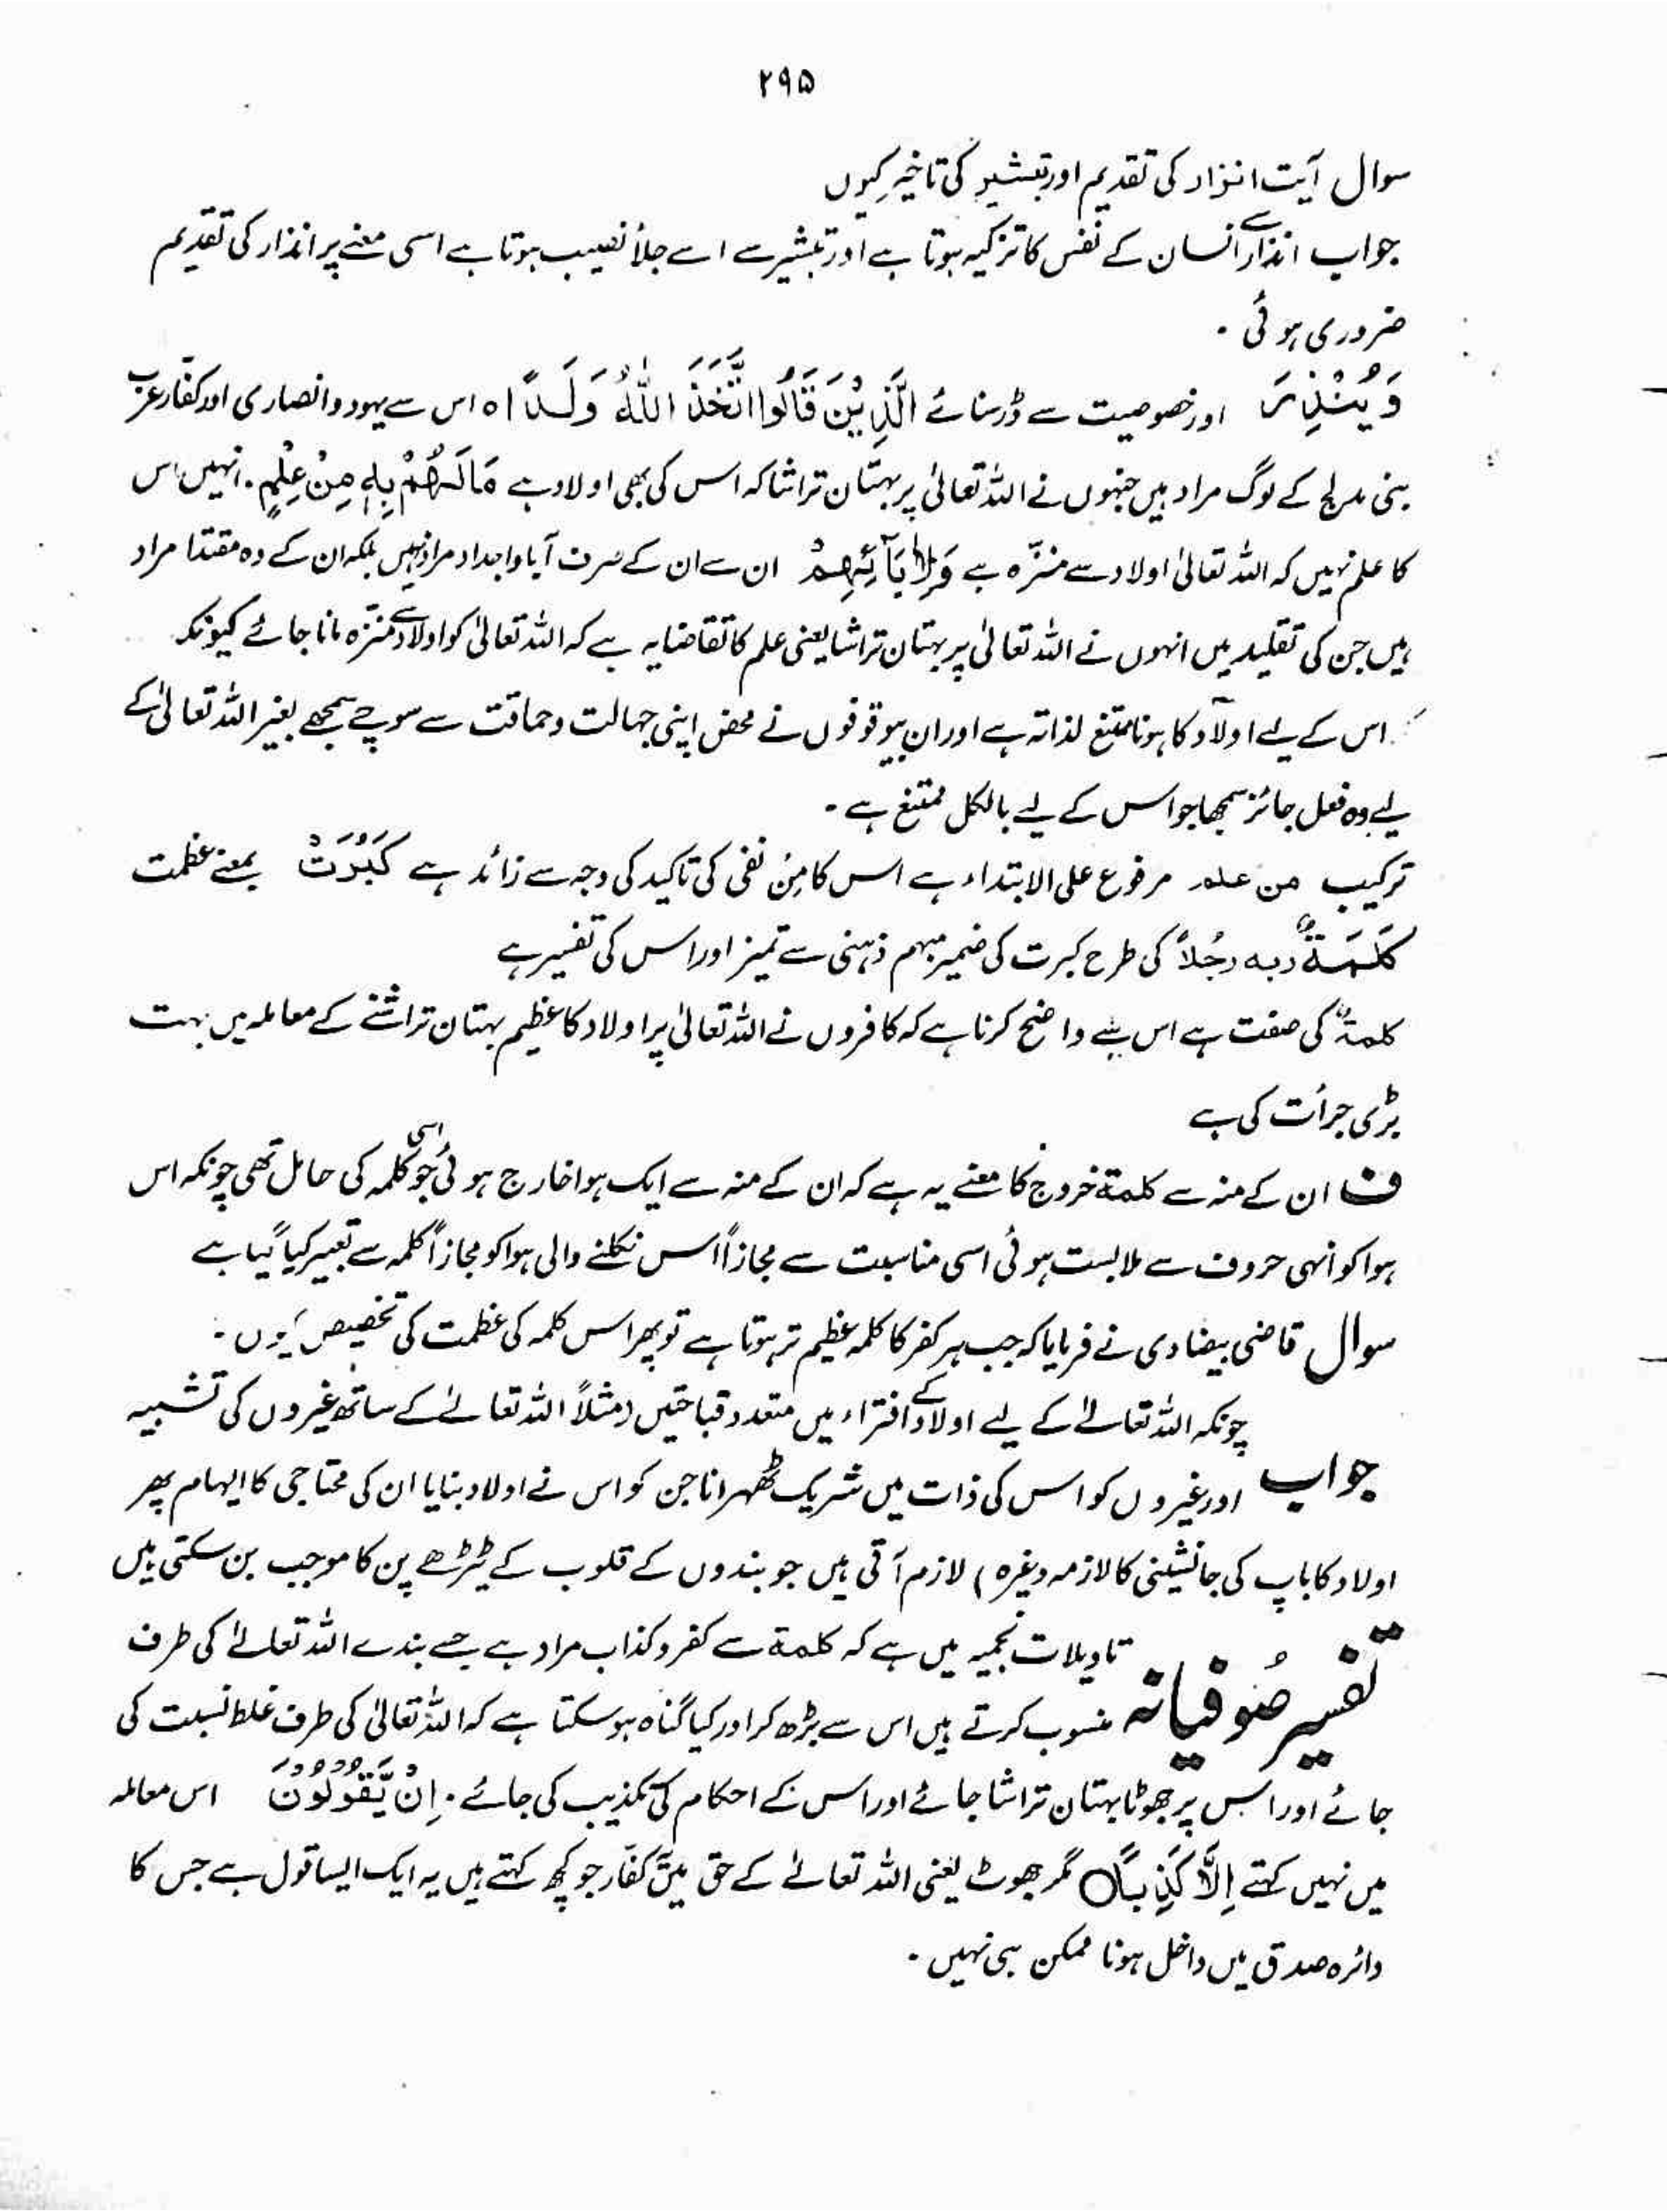 ۲۹۵
سوال آیت انذار کی تقدیم اور تبشیر کی تاخیر کیوں
جواب انذار سے انسان کے نفس کا تزکیہ ہوتا ہے اور تبشیر سے اسے جلأ نصیب ہوتا ہے اسی معنے پر انذار کی تقدیم
ضروری ہوئی ۔
وَيُنْذِرَ اور خصوصیت سے ڈر سنائے الَّذِيْنَ قَالُوا اتَّخَذَ اللّٰهُ وَلَدًا ہ اس سے یہود و انصاری اور کفار عرب
بنی مدلج کے لوگ مراد ہیں جنہوں نے اللہ تعالیٰ پر بہتان تراشا کہ اس کی بھی اولاد ہے مَا لَهُمْ بِهٖ مِنْ عِلْمٍ ۔ انہیں اس
کا علم نہیں کہ اللہ تعالیٰ اولاد سے منزّہ ہے وَلَا لِاٰبَآئِهِمْ ان سے ان کے صرف آبا و اجداد مراد نہیں بلکہ ان کے وہ مقتدا مراد
ہیں جن کی تقلید میں انہوں نے اللہ تعالیٰ پر بہتان تراشا یعنی علم کا تقاضا یہ ہے کہ اللہ تعالیٰ کو اولاد سے منزّہ مانا جائے کیونکہ
اس کے لیے اولاد کا ہونا ممتنع لذاتہ ہے اور ان بیوقوفوں نے محض اپنی جہالت و حماقت سے سوچے سمجھے بغیر اللہ تعالیٰ کے
لیے وہ فعل جائز سمجھا جو اس کے لیے بالکل ممتنع ہے ۔
ترکیب من علم مرفوع علی الابتداء ہے اس کا مِنْ نفی کی تاکید کی وجہ سے زائد ہے كَبُرَتْ بمعنے عظمت
كَلِمَةً ربه رجُلاً کی طرح کبرت کی ضمیر مبہم ذہنی سے تمیز اور اس کی تفسیر ہے
کلمةً کی صفت ہے اس سے واضح کرنا ہے کہ کافروں نے اللہ تعالیٰ پر اولاد کا عظیم بہتان تراشنے کے معاملہ میں بہت
بڑی جرأت کی ہے
ف ان کے منہ سے کلمة خروج کا معنے یہ ہے کہ ان کے منہ سے ایک ہوا خارج ہوئی جو اسی کلمہ کی حامل تھی چونکہ اس
ہوا کو انہی حروف سے ملابست ہوئی اسی مناسبت سے مجازاً اس نکلنے والی ہوا کو مجازاً کلمہ سے تعبیر کیا گیا ہے
سوال قاضی بیضاوی نے فرمایا کہ جب ہر کفر کا کلمہ عظیم تر ہوتا ہے تو پھر اس کلمہ کی عظمت کی تخصیص کیوں ۔
چونکہ اللہ تعالےٰ کے لیے اولاد کے افتراء میں متعدد قباحتیں (مثلاً اللہ تعالےٰ کے ساتھ غیروں کی تشبیہ
جواب اور غیروں کو اس کی ذات میں شریک ٹھہرانا جن کو اس نے اولاد بنایا ان کی محتاجی کا ایہام پھر
اولاد کا باپ کی جانشینی کا لازمہ وغیرہ) لازم آتی ہیں جو بندوں کے قلوب کے ٹیڑھے پن کا موجب بن سکتی ہیں
تاویلات نجمیہ میں ہے کہ کلمة سے کفر و کذاب مراد ہے جسے بندے اللہ تعالےٰ کی طرف
تفسیر صُوفیانہ منسوب کرتے ہیں اس سے بڑھ کر اور کیا گناہ ہو سکتا ہے کہ اللہ تعالیٰ کی طرف غلط نسبت کی
جائے اور اس پر جھوٹا بہتان تراشا جائے اور اس کے احکام کی تکذیب کی جائے ۔ اِنْ يَّقُوْلُوْنَ اس معاملہ
میں نہیں کہتے اِلَّا كَذِبًا ۝ مگر جھوٹ یعنی اللہ تعالےٰ کے حق میں کفّار جو کچھ کہتے ہیں یہ ایک ایسا قول ہے جس کا
دائرہ صدق میں داخل ہونا ممکن ہی نہیں ۔